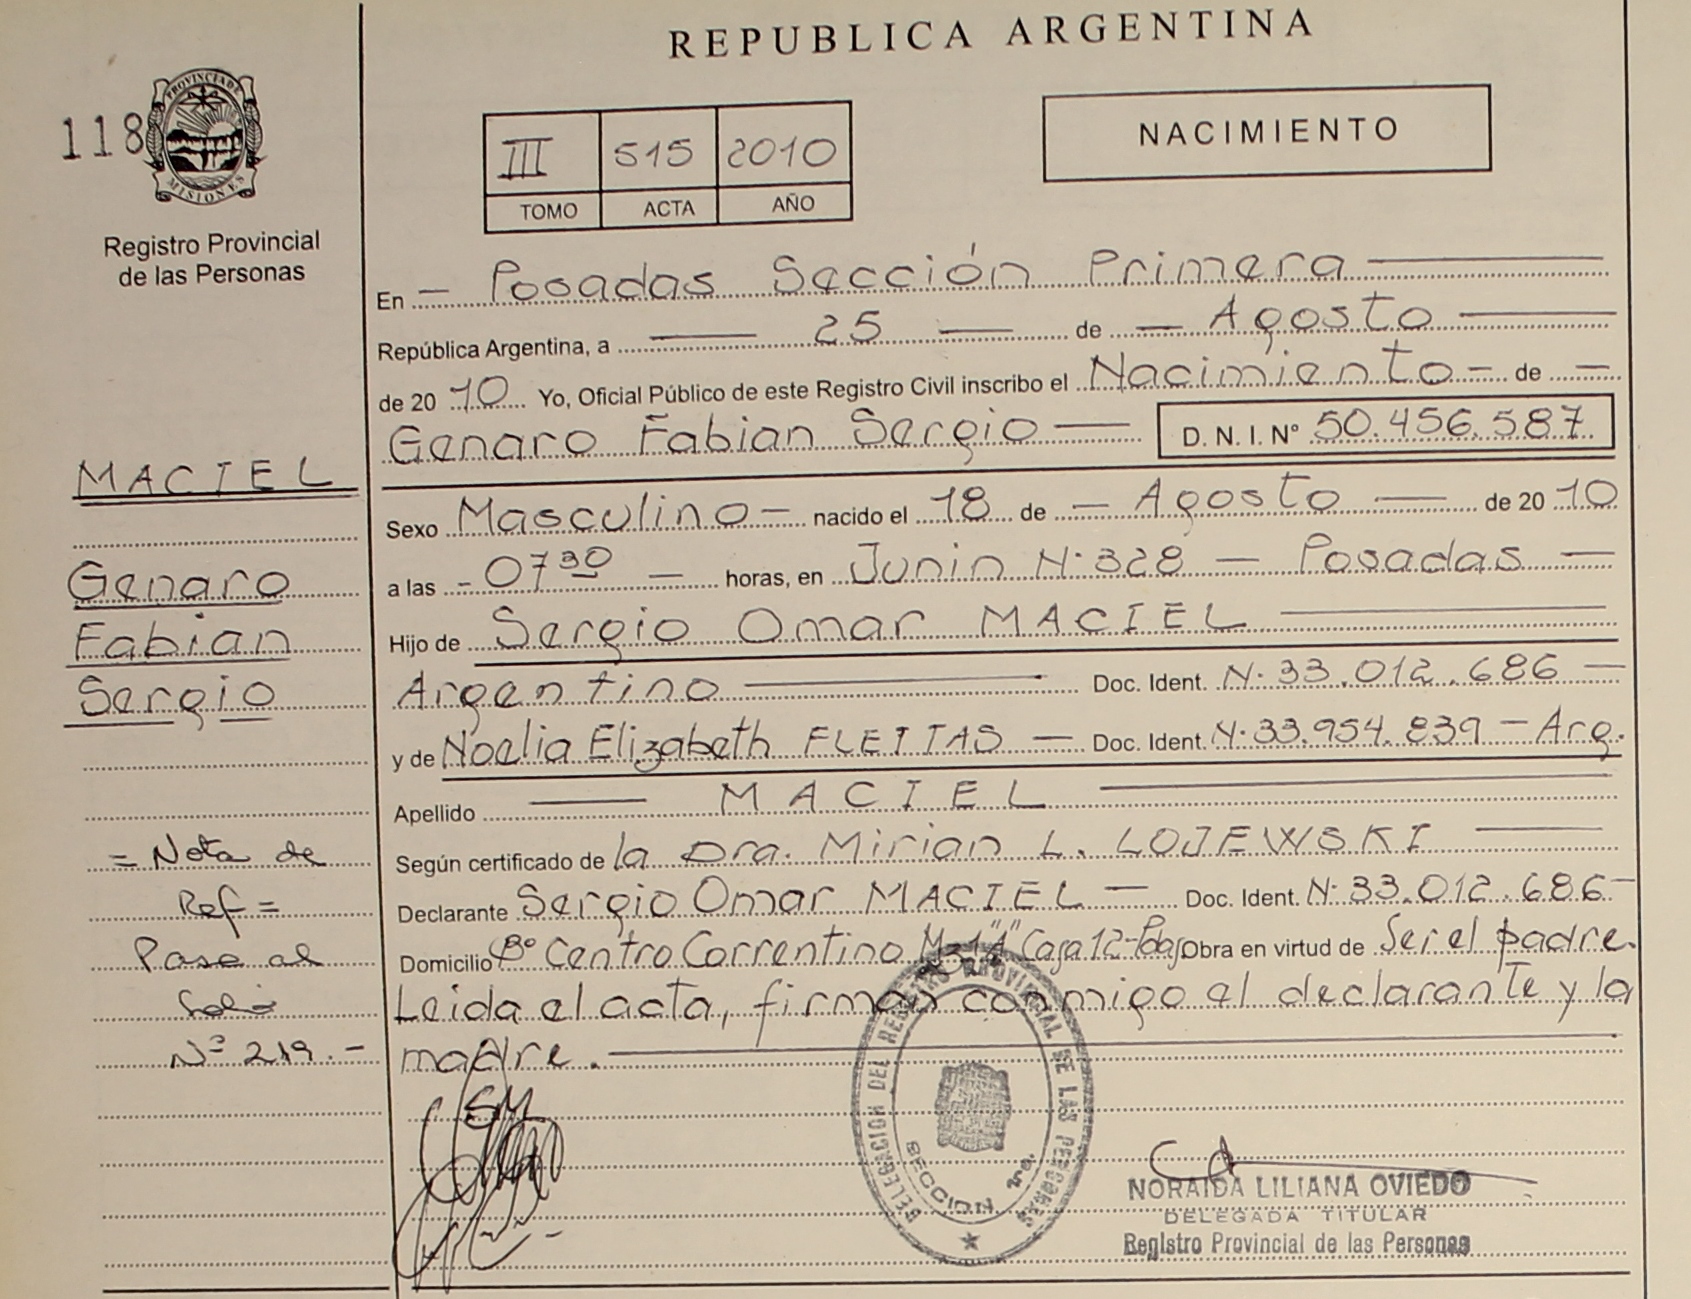 REPUBLICA ARGENTINA
118
PROVINCIA DE MISIONES
Registro Provincial
de las Personas
III 515 2010
TOMO ACTA AÑO
NACIMIENTO
En - Posadas Sección Primera
República Argentina, a 25 de - Agosto
de 2010 Yo, Oficial Público de este Registro Civil inscribo el Nacimiento - de -
Genaro Fabian Sergio D. N. I. N° 50.456.587
MACIEL
Sexo Masculino - nacido el 18 de - Agosto - de 2010
Genaro
a las - 07 30 - horas, en Junin N° 328 - Posadas -
Fabian
Hijo de Sergio Omar MACIEL
Sergio
Argentino Doc. Ident. N° 33.012.686 -
y de Noelia Elizabeth FLEITAS - Doc. Ident. N° 33.954.839 - Arg.
Apellido MACIEL
= Nota de
Según certificado de la Dra. Mirian L. LOJEWSKI
Ref =
Declarante Sergio Omar MACIEL - Doc. Ident. N° 33.012.686 -
Pase al
Domicilio B° Centro Correntino Mz 1 "A" Casa 12 - Obra en virtud de Ser el padre.
Leida el acta, firman conmigo el declarante y la
N° 219.-
madre.
DELEGACION DEL REGISTRO PROVINCIAL DE LAS PERSONAS
SECCION 1ra.
NORAIDA LILIANA OVIEDO
DELEGADA TITULAR
Registro Provincial de las Personas